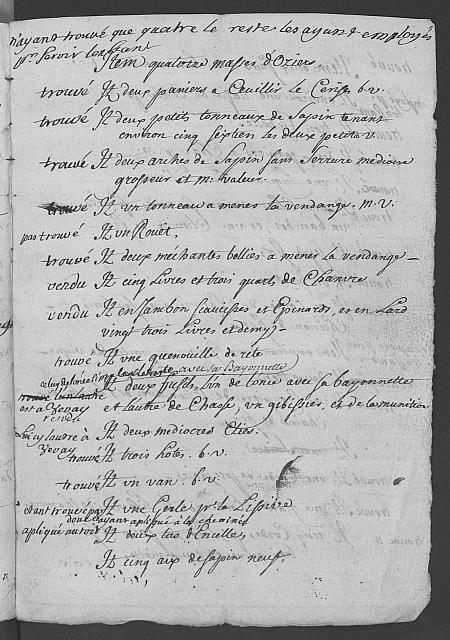 n'ayant trouvé que quatre le reste les ayant employés
pr. servir
Item quatorze masses d'Oziers
trouvé It deux paniers a Ceuillir le Cerises b.v.
trouvé It deux petits tonneaux de Sapin tenant
environ cinq Septiers les deux petite v.
trouvé It deux arches de Sapin sans Serrure mediocre
grosseur et m. valeur.
trouvé It un tonneau a mener la vendange. m.v.
pas trouvé It un Rouet.
trouvé It deux méchantes bosses a mener la vendange
vendu It cinq Livres et trois quarts de Chanvre
vendu It en Jambon saucisses et Epinards, et en Lard
vingt trois Livres et demy
trouvé It une quenouille de rite
avec sa Bayonnette
trouvé It deux fusils, l'un de l'once avec sa bayonnette
est a Vevay et l'autre de Chasse, un gibissier, et de la munition
It deux mediocres Clies.
Vevay
trouvé It trois hotes. b.v.
trouvé It un van. b.v.
trouvé It une Gerle pr. la Lissive
ayant apliqué a la cheminée
apliqué au toit It deux tas d'Encelles
It cinq aix de sapin neufs.